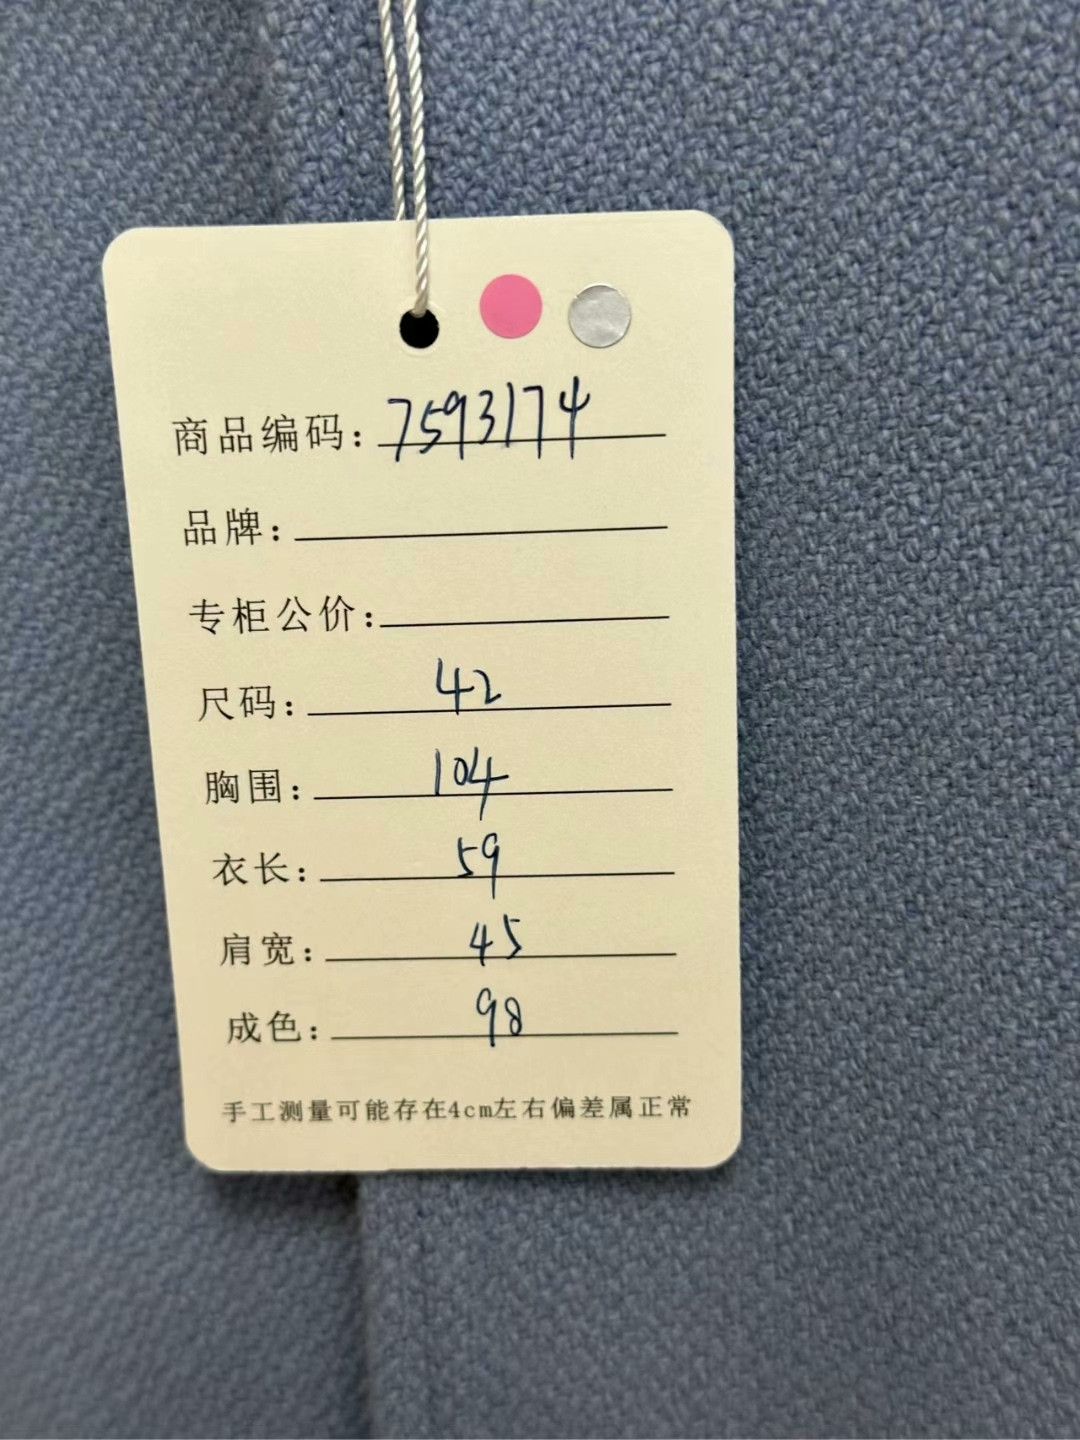 商品编码：7593174
品牌：
专柜公价：
尺码：42
胸围：104
衣长：59
肩宽：45
成色：98
手工测量可能存在4cm左右偏差属正常